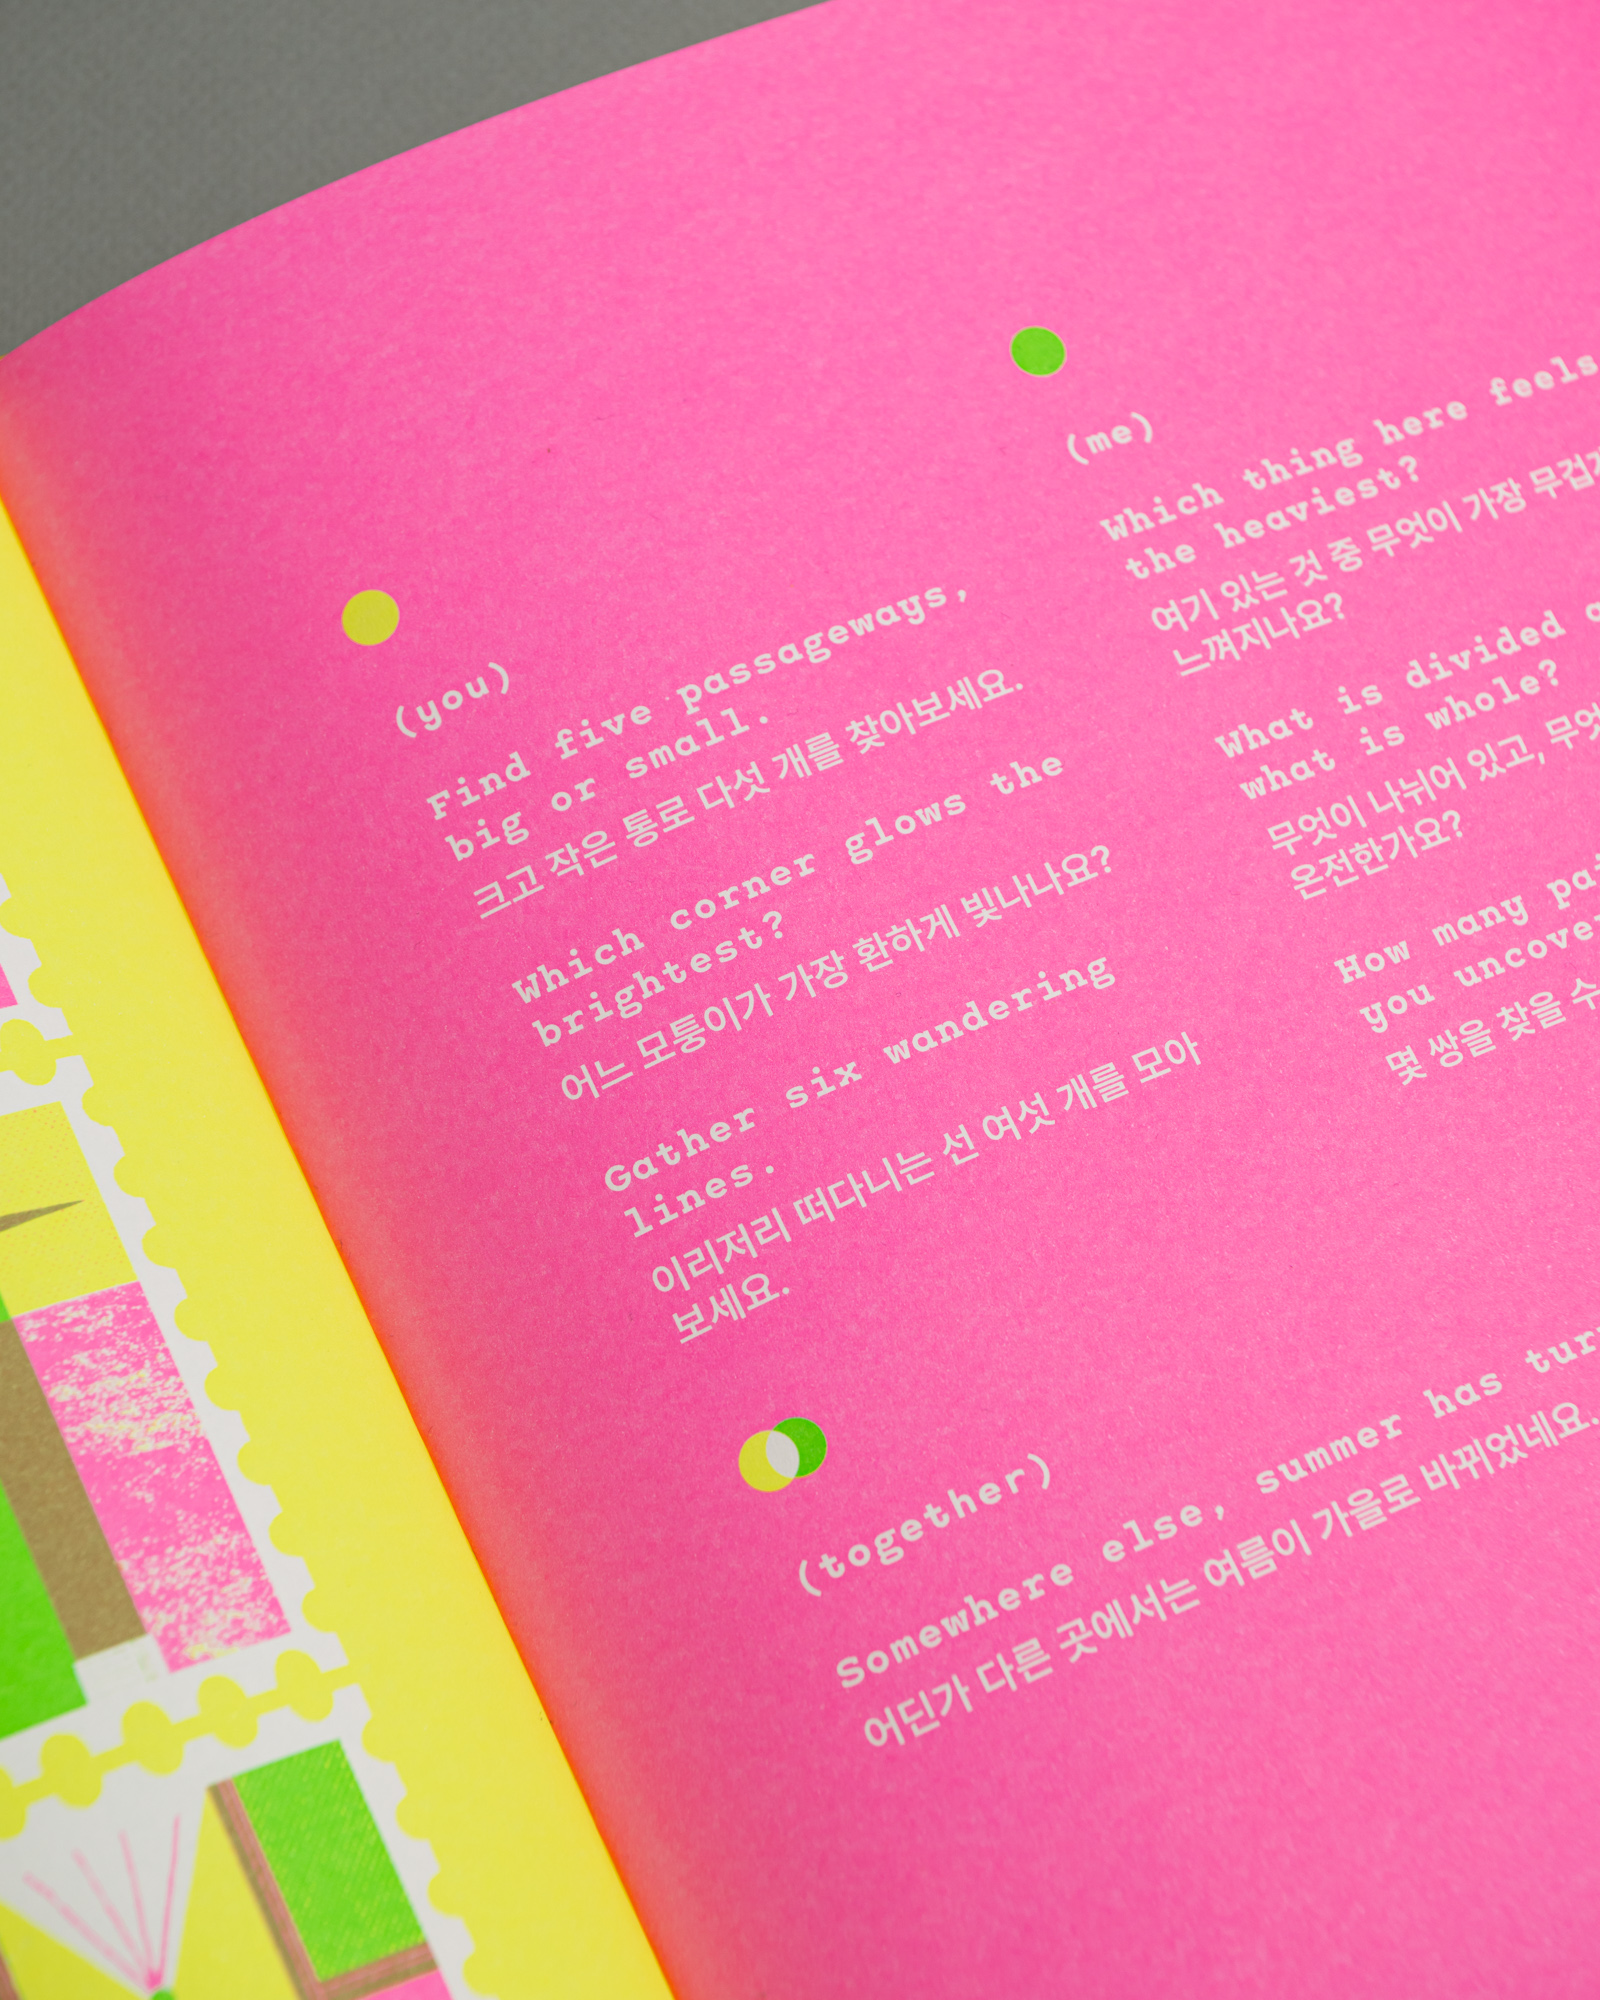 (you)
Find five passageways,
big or small.
크고 작은 통로 다섯 개를 찾아보세요.
Which corner glows the
brightest?
어느 모퉁이가 가장 환하게 빛나나요?
Gather six wandering
lines.
이리저리 떠다니는 선 여섯 개를 모아
보세요.
(me)
Which thing here feels
the heaviest?
여기 있는 것 중 무엇이 가장 무겁게
느껴지나요?
What is divided
what is whole?
무엇이 나뉘어 있고,
온전한가요?
How many
you
몇 쌍을 찾을 수
(together)
Somewhere else, summer has
어딘가 다른 곳에서는 여름이 가을로 바뀌었네요.